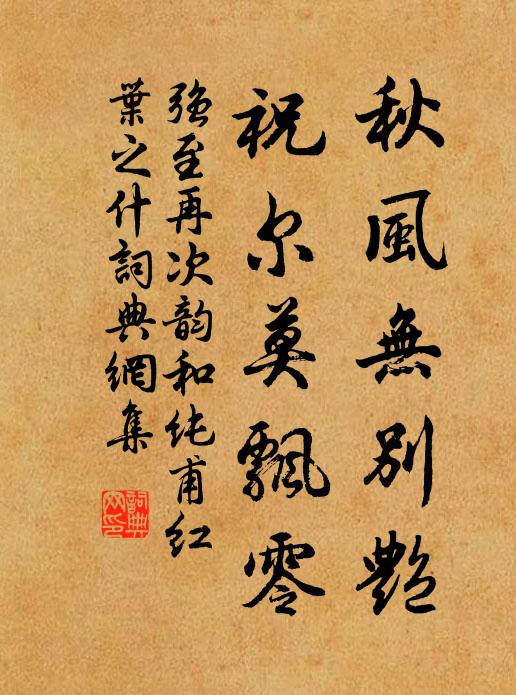 秋風無別艷
祝尔莫飄零
强至再次韵和纯甫红
葉之什詞典網集
詞典网印